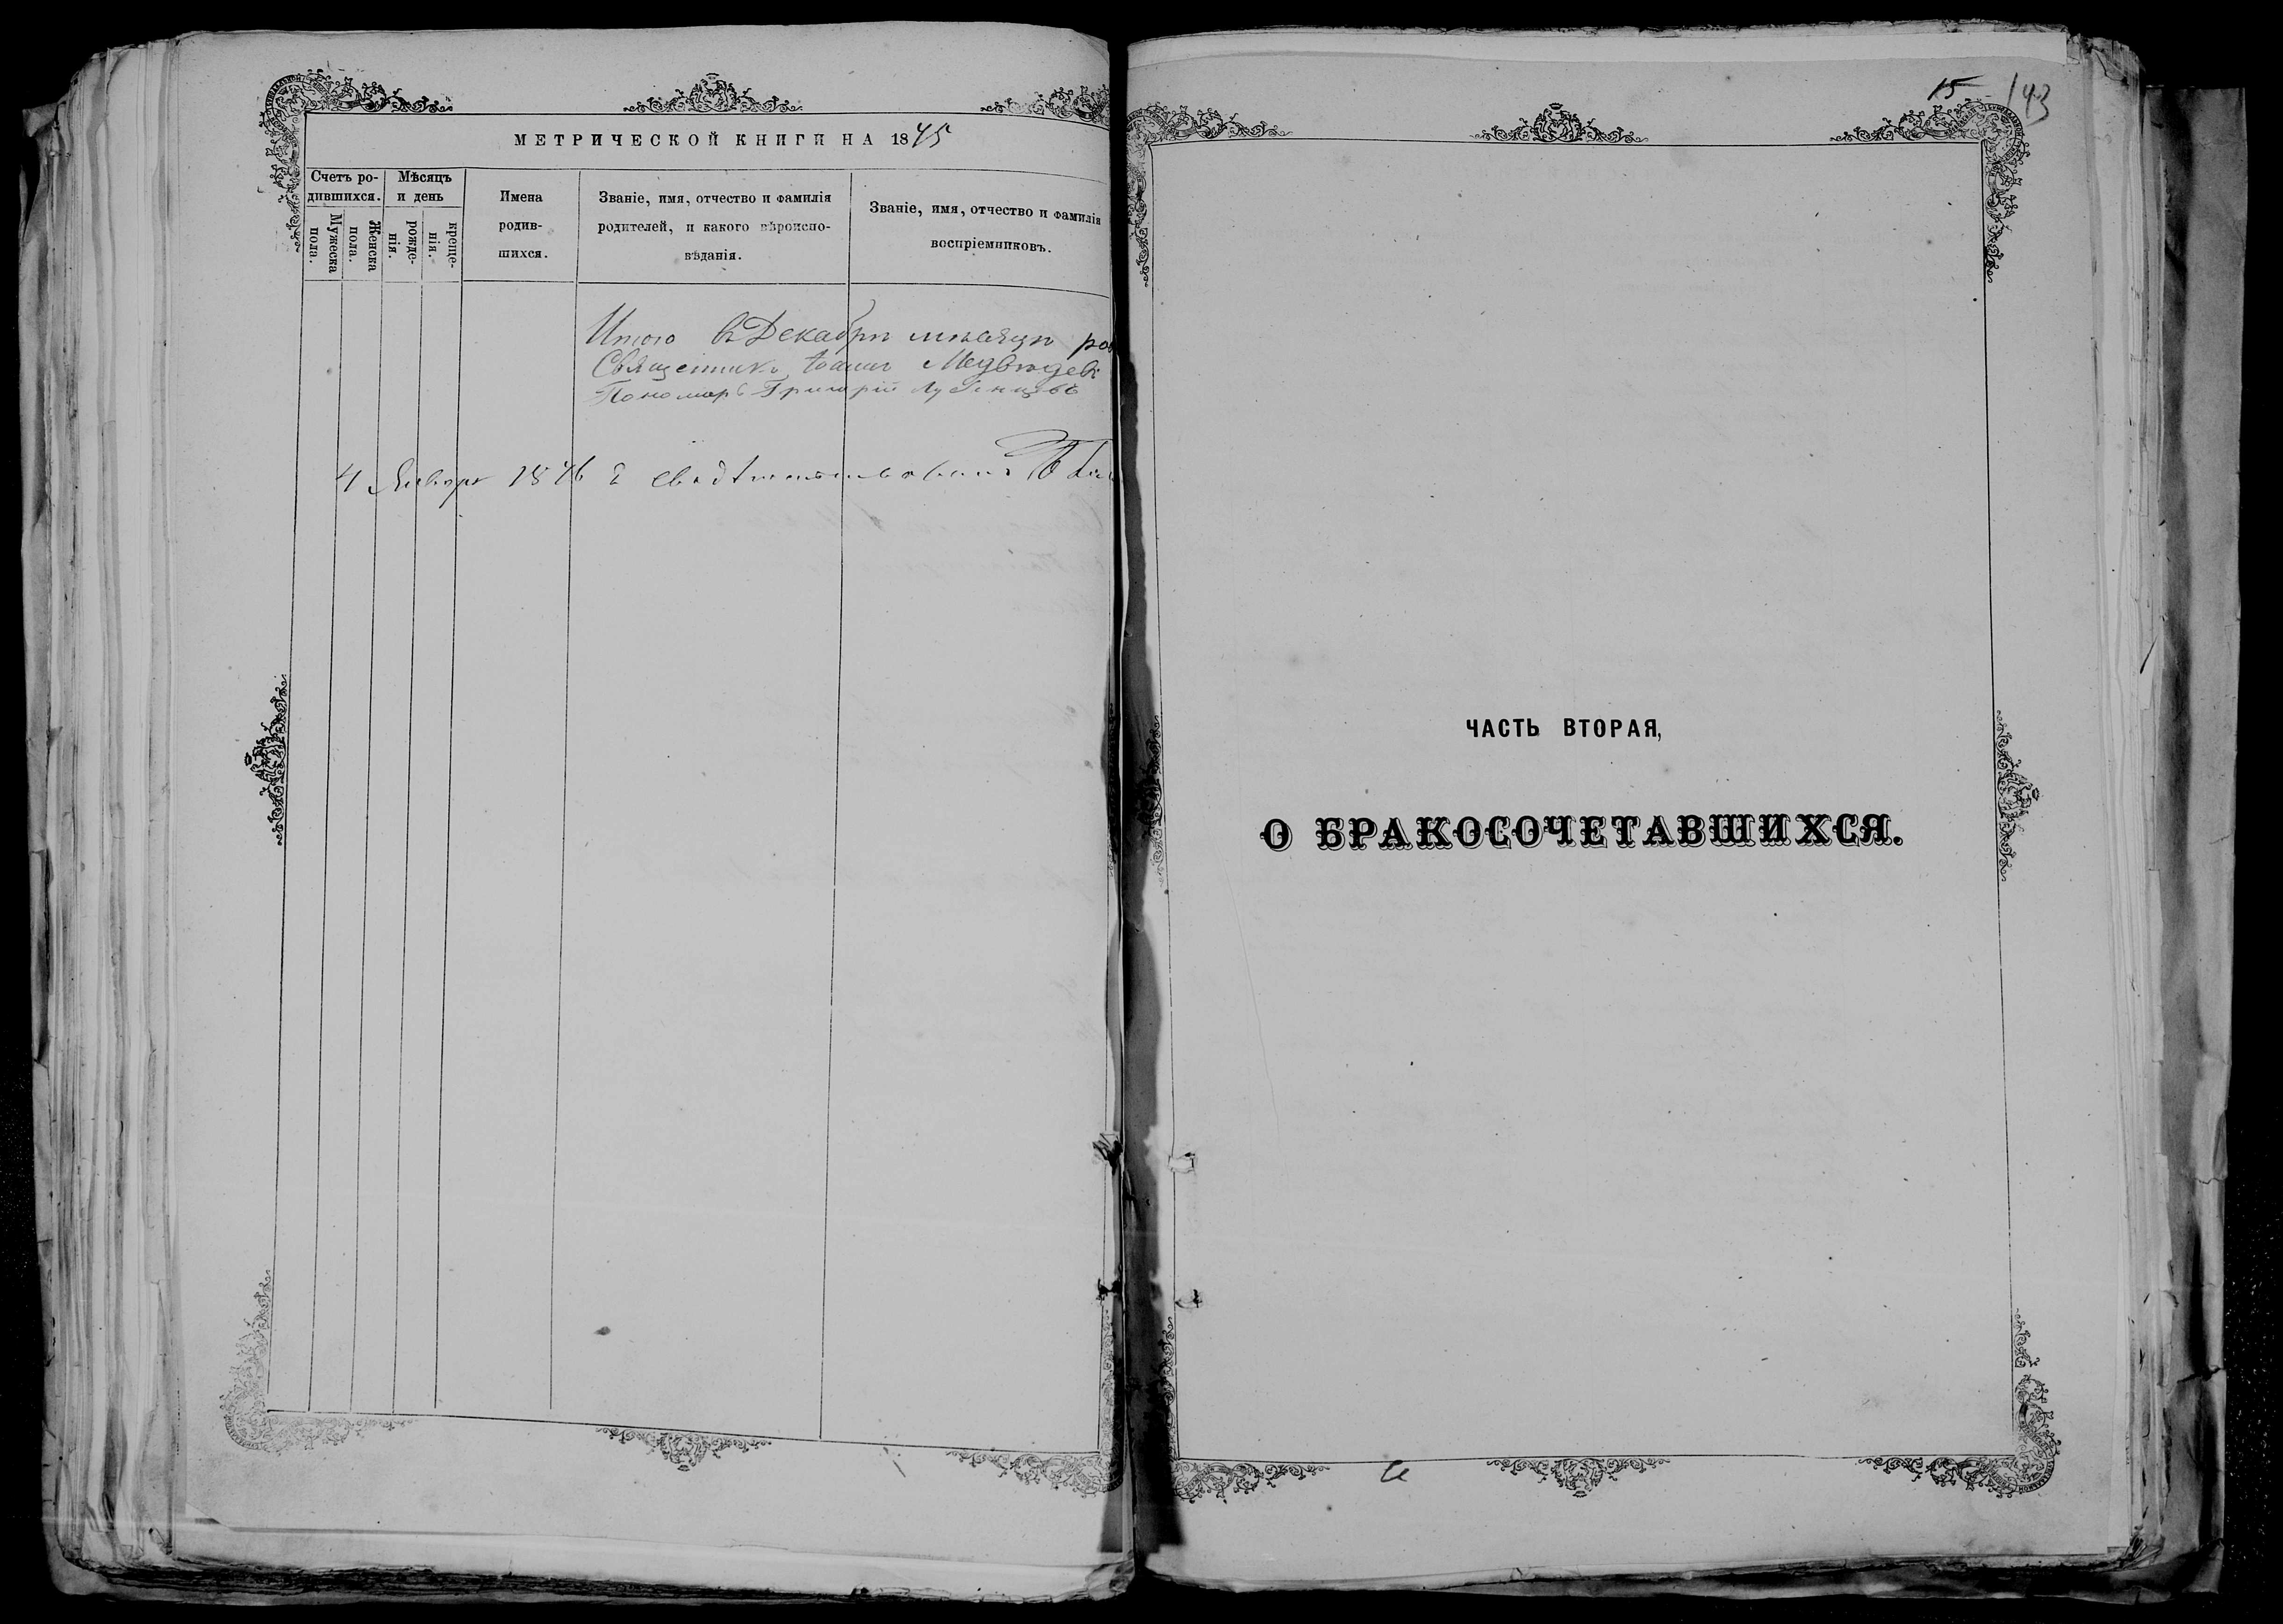 МЕТРИЧЕСКОЙ КНИГИ НА 1875
Счетъ ро-
дившихся.
Мужеска
пола.
Женска
пола.
Мѣсяцъ
и день
рожде-
нія.
креще-
нія.
Имена
родив-
шихся.
Званіе, имя, отчество и фамилія
родителей, и какого вѣроиспо-
вѣданія.
Званіе, имя, отчество и фамилія
воспріемниковъ.
Итого въ Декабрѣ мѣсяцѣ
Священникъ Іоаннъ Медвѣдев
Пономарь Григорій
4 Января 1876 г свидѣтельствовалъ
15
143
ЧАСТЬ ВТОРАЯ,
О БРАКОСОЧЕТАВШИХСЯ.